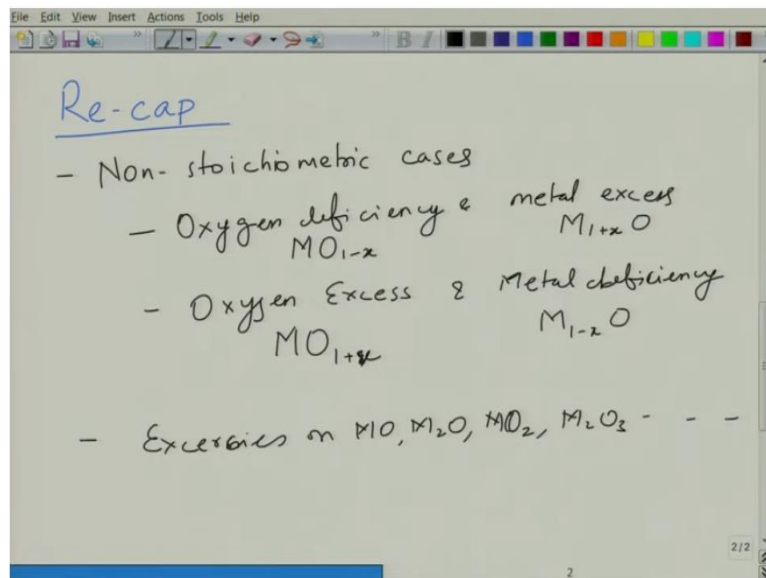 File Edit View Insert Actions Tools Help
B I
Re-cap
- Non-stoichiometric cases
- Oxygen deficiency & metal excess
MO1-x M1+xO
- Oxygen Excess & Metal deficiency
MO1+x M1-xO
- Excersies on MO, M2O, MO2, M2O3 - - -
2/2
2